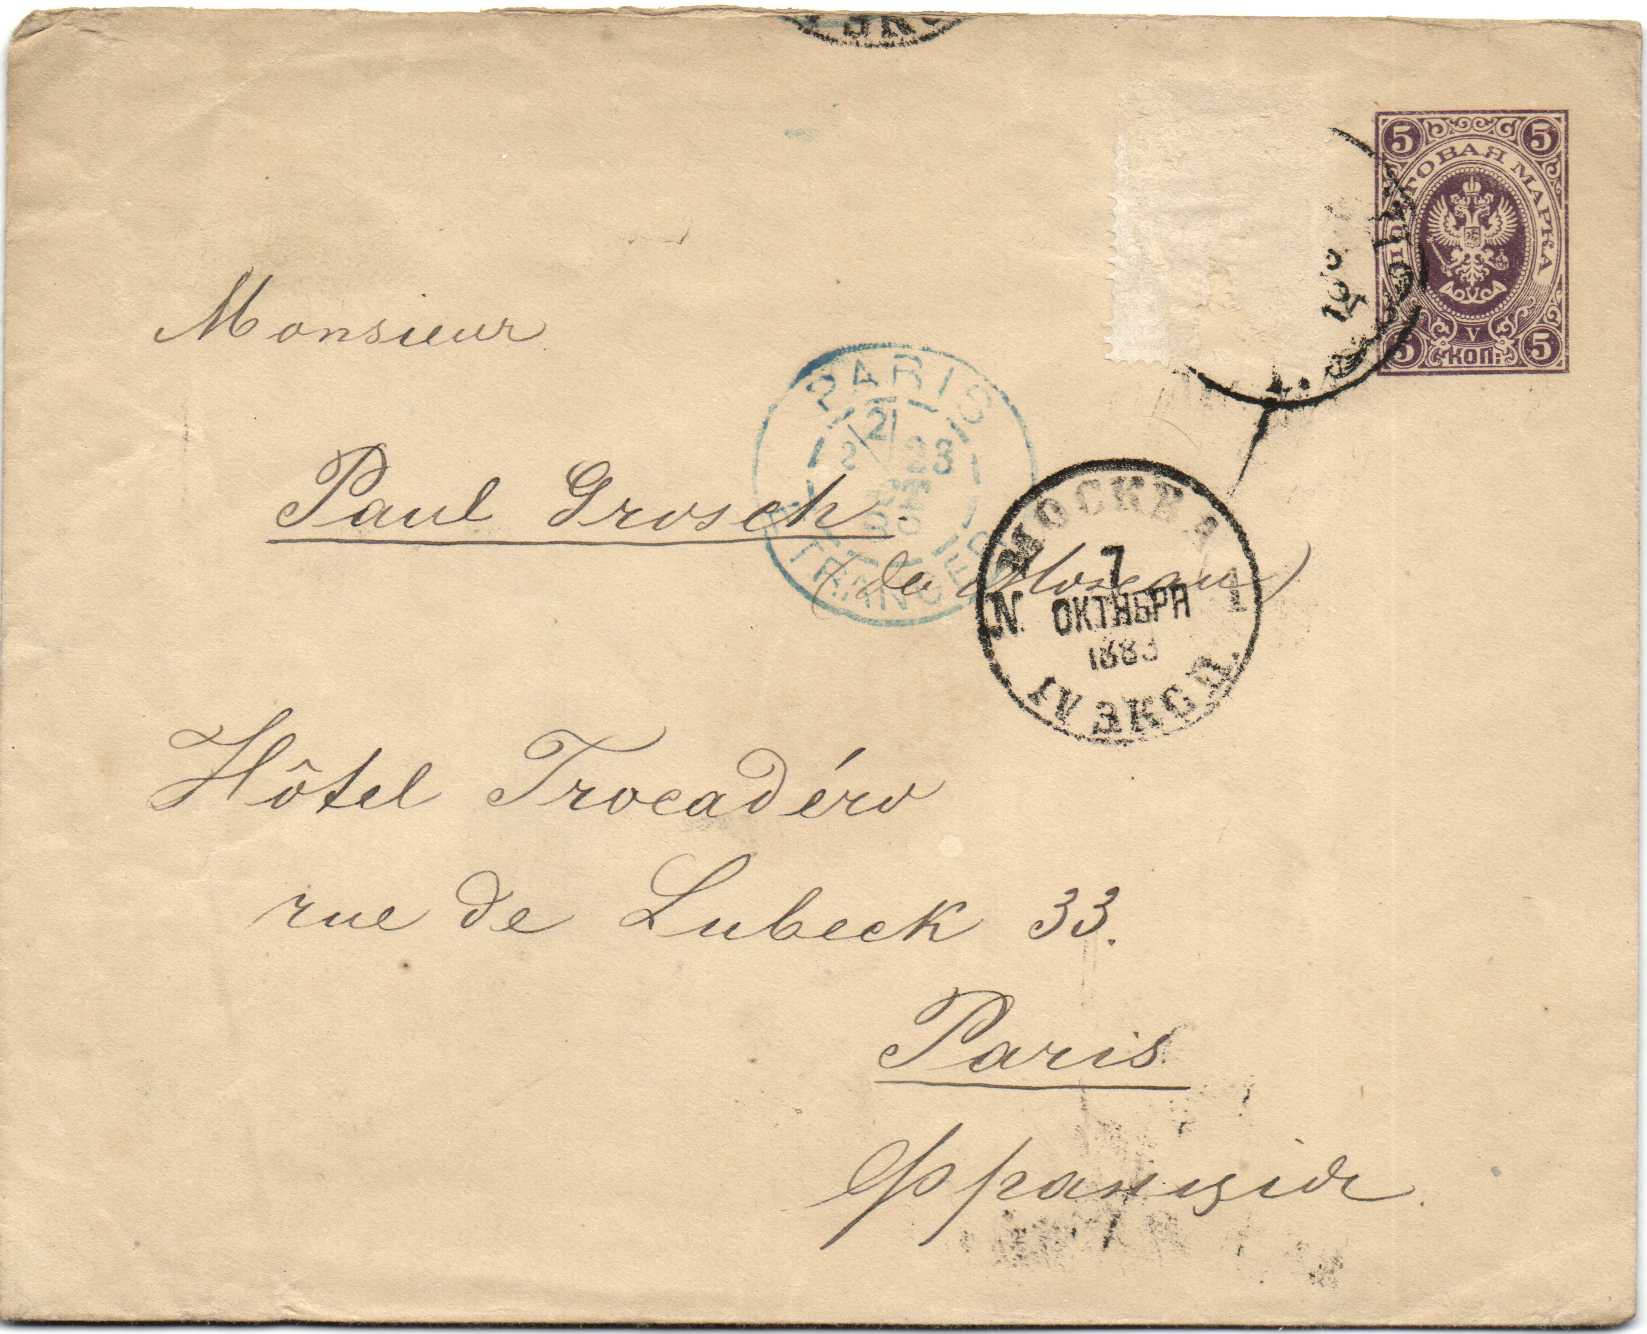 5 5
ПОЧТОВАЯ МАРКА
V
5 КОП. 5
Monsieur
Paul Grosch.
(de Moscau)
PARIS
2
2 23
OCT
ETRANGER
МОСКВА
7
N. ОКТЯБРЯ 1
1883
IV ЭКСП.
Hôtel Trocadéro
rue de Lubeck 33.
Paris
Франція.